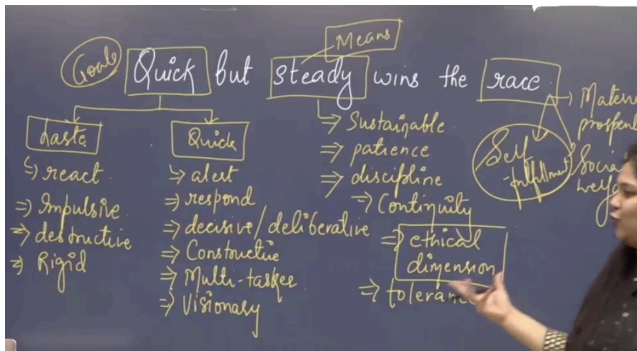 Means
Goals Quick but steady wins the race
Haste
=> react
=> Impulsive
=> destructive
=> Rigid
Quick
=> alert
=> respond
=> decisive/deliberative
=> Constructive
=> Multi-tasker
=> Visionary
=> Sustainable
=> patience
=> discipline
=> Continuity
=> ethical
dimension
=> toleran
Self
fulfillment
Mater
prosper
Socia
welf